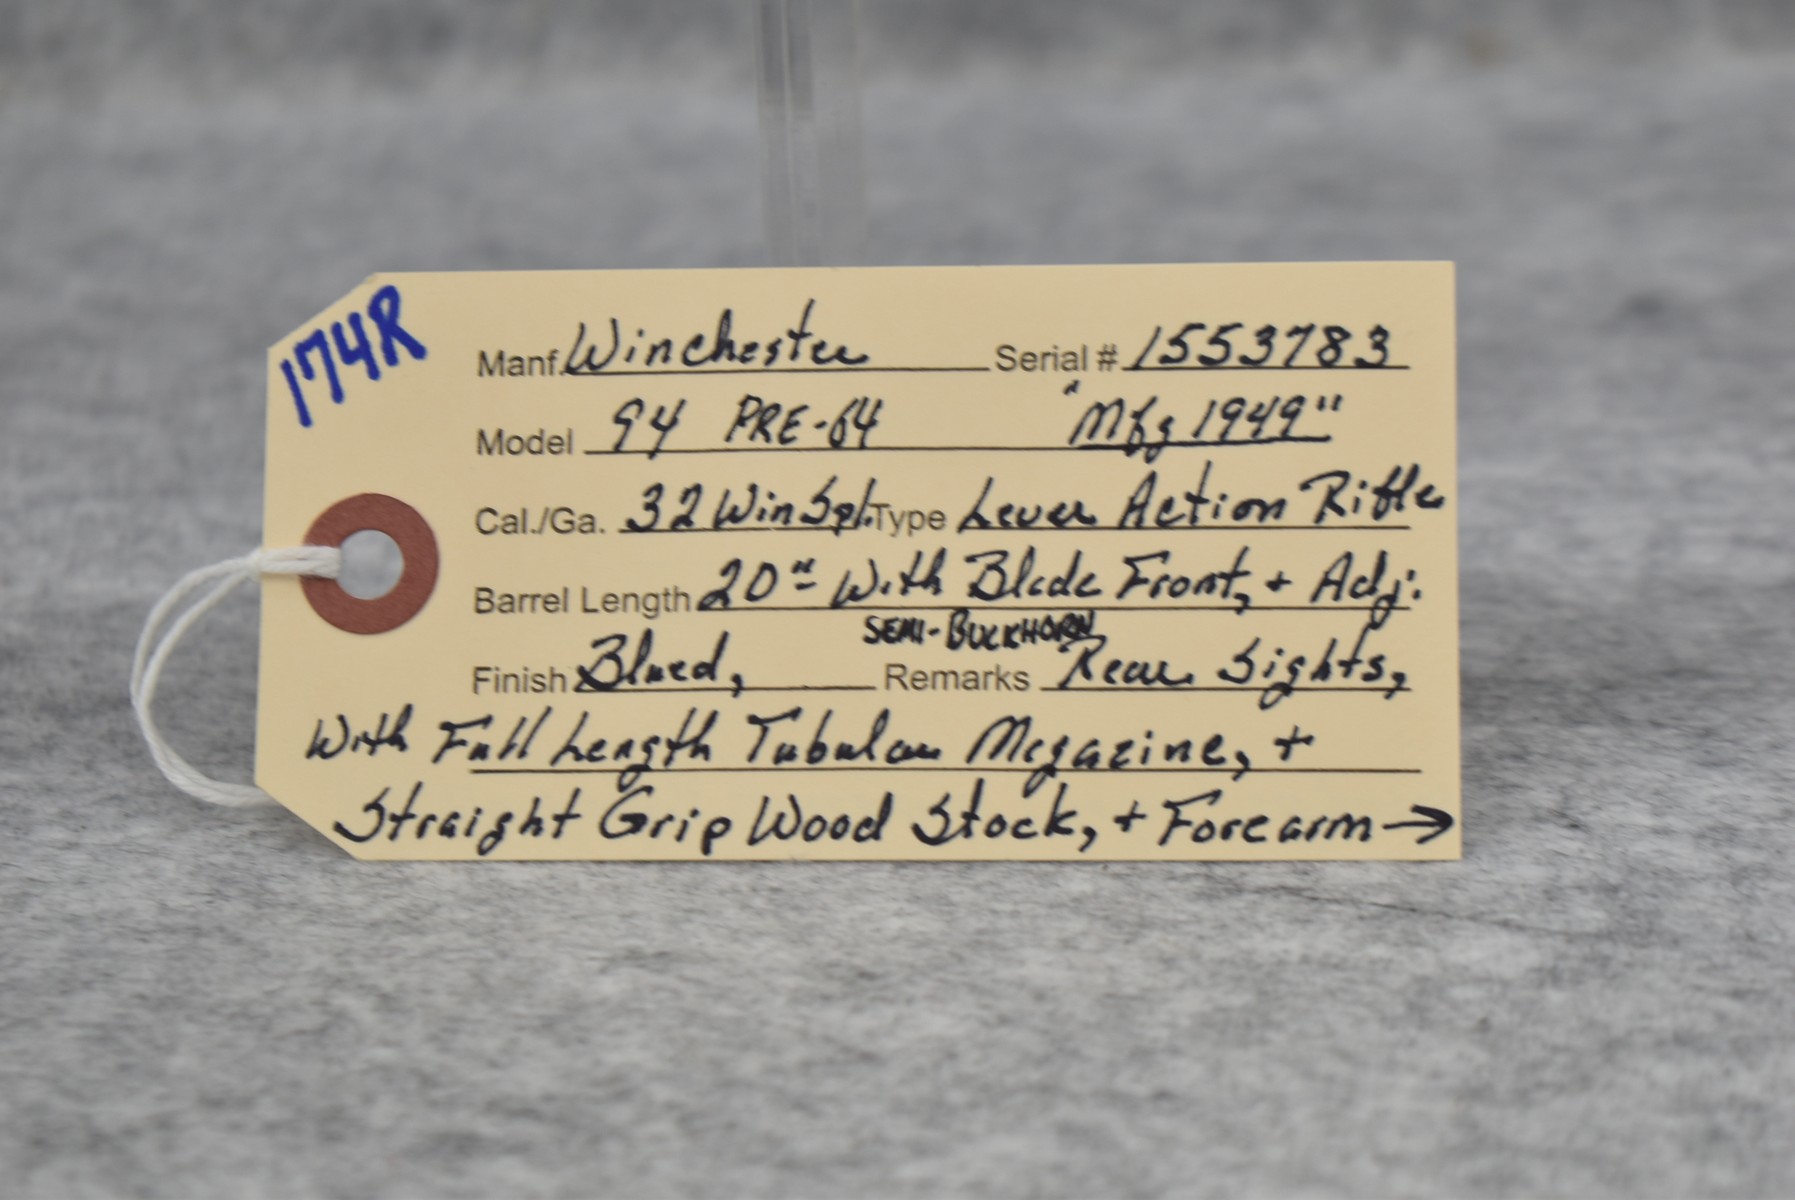 174R
Manf. Winchester Serial # 1553783
Model 94 PRE-64 "Mfg 1949"
Cal./Ga. 32 Win Spl. Type Lever Action Rifle
Barrel Length 20" With Blade Front, + Adj.
SEMI-BUCKHORN
Finish Blued, Remarks Rear Sights,
With Full Length Tubular Magazine, +
Straight Grip Wood Stock, + Forearm →